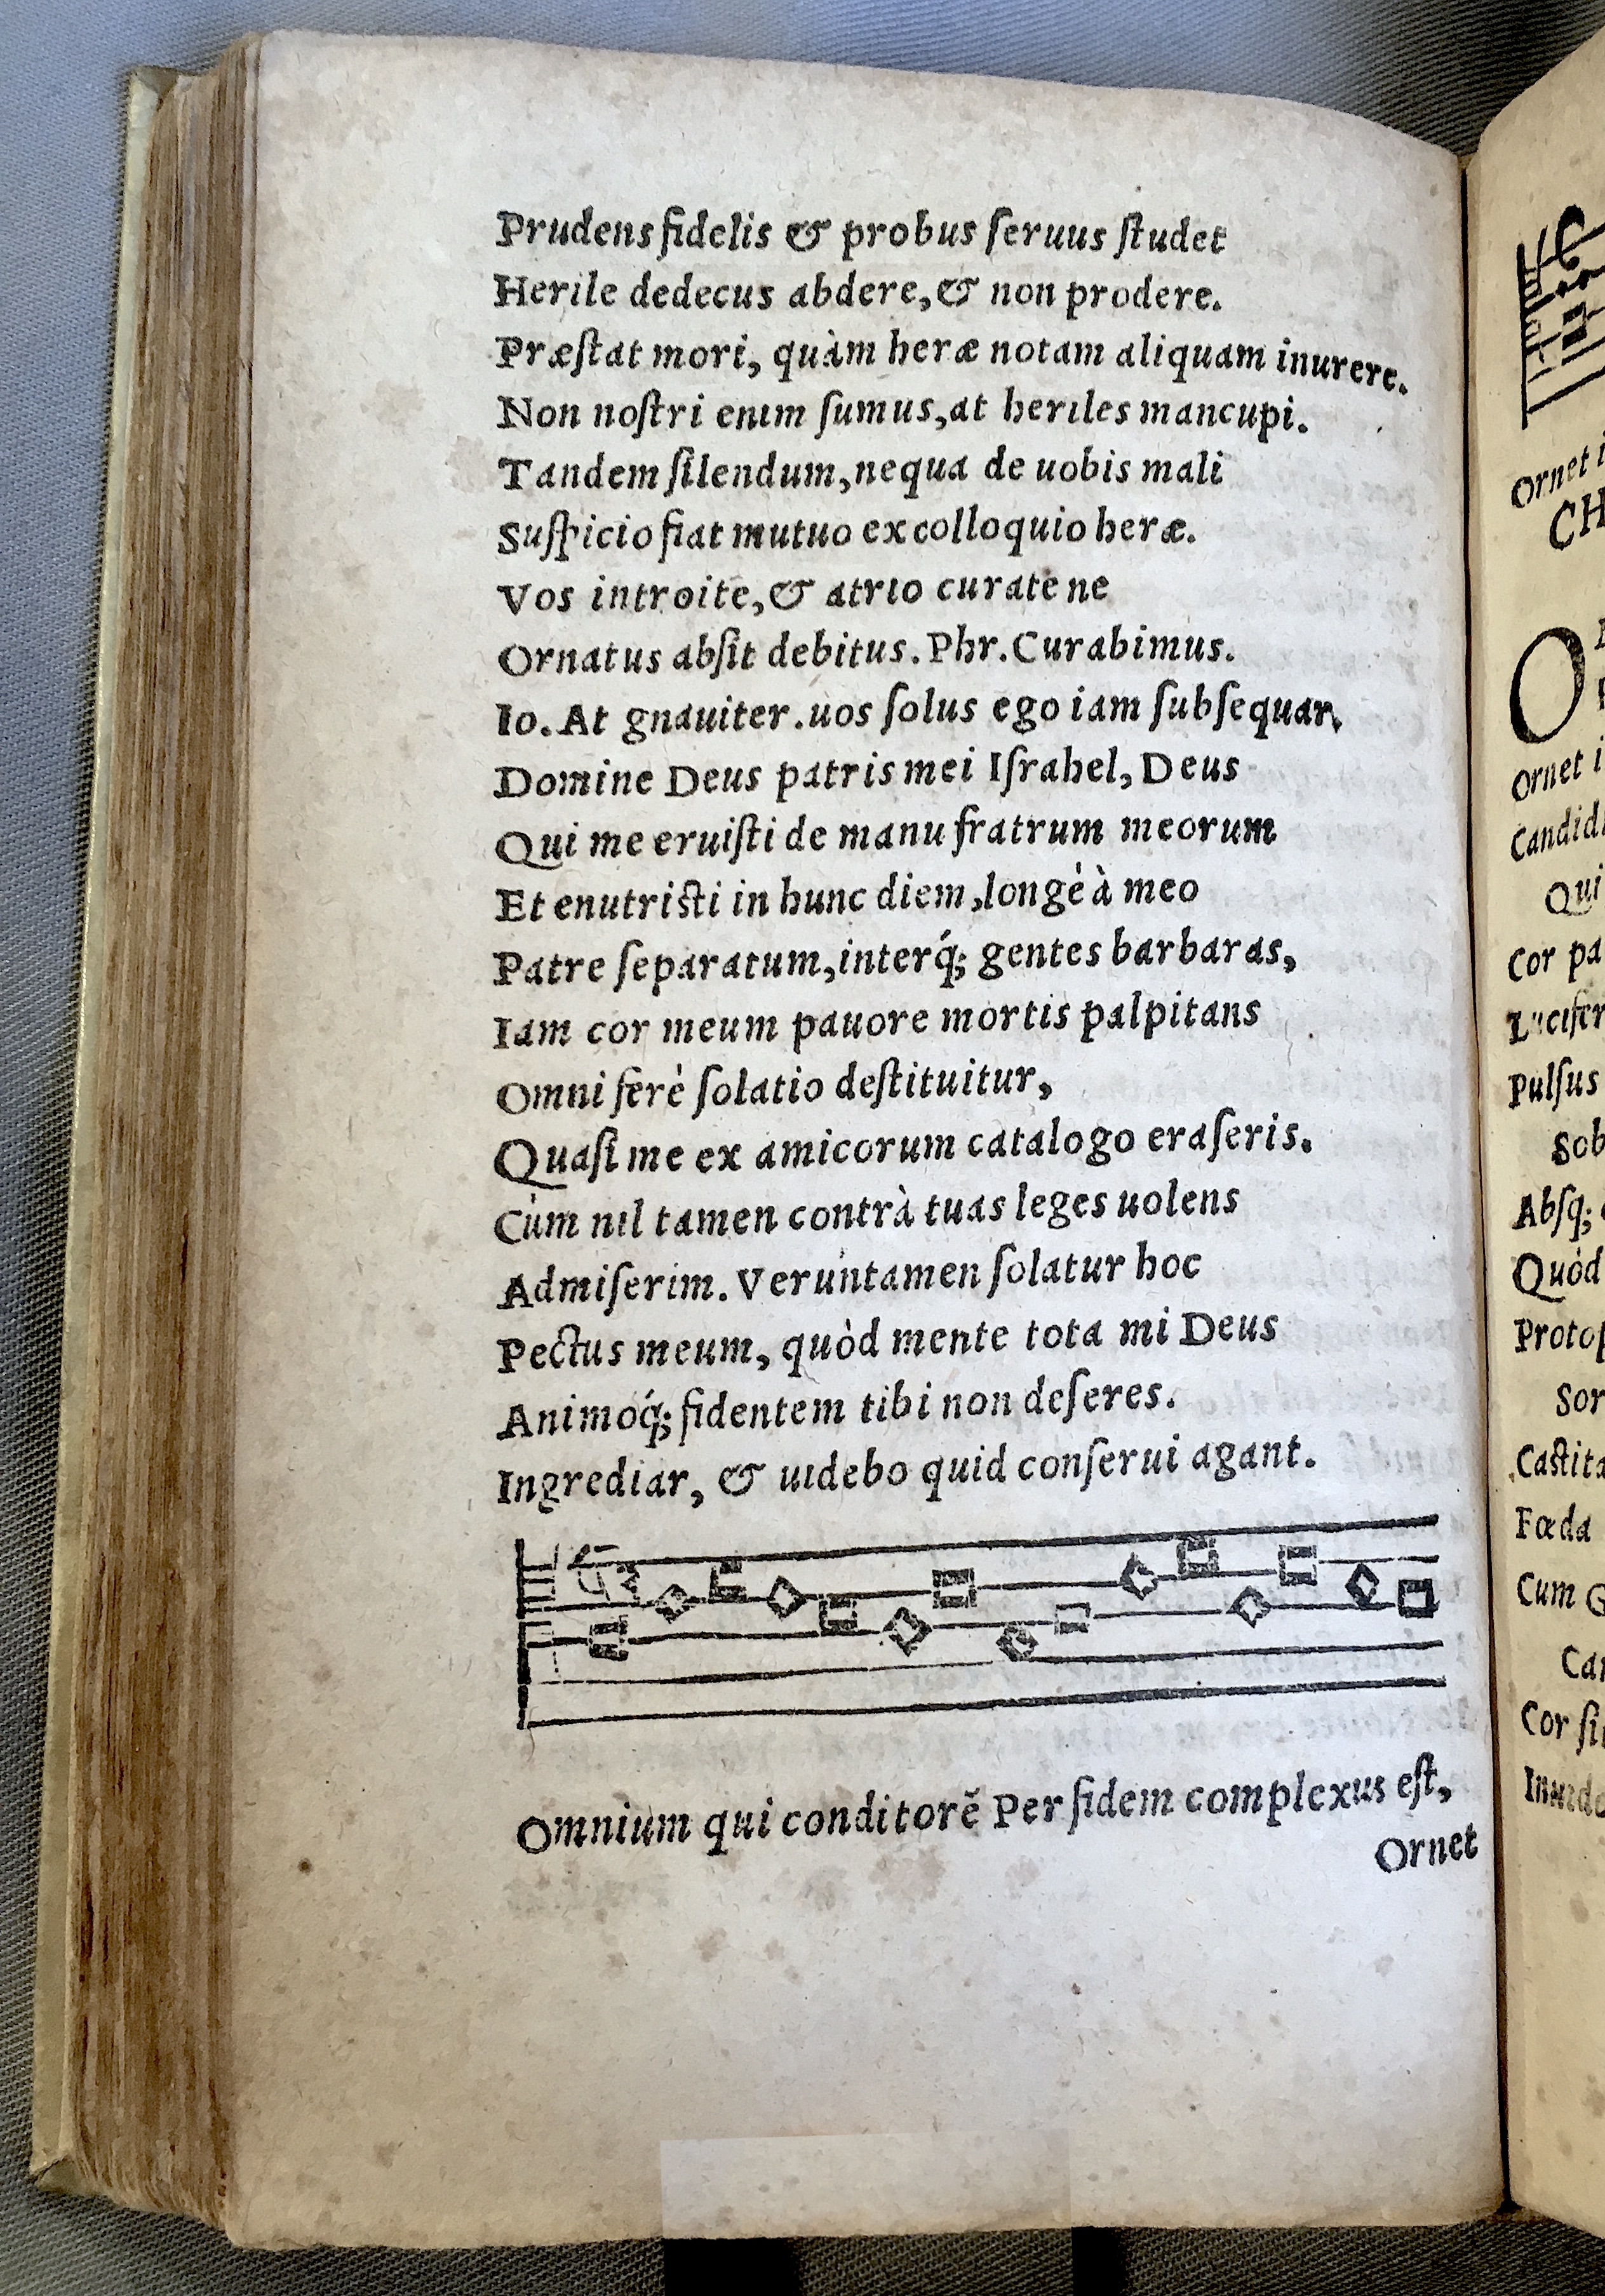 Prudens fidelis & probus ſeruus ſtudet
Herile dedecus abdere, & non prodere.
Præſtat mori, quàm heræ notam aliquam inurere.
Non noſtri enim ſumus, at heriles mancupi.
Tandem ſilendum, nequa de uobis mali
Suſpicio fiat mutuo ex colloquio heræ.
Vos introite, & atrio curate ne
Ornatus abſit debitus. Phr. Curabimus.
Io. At gnauiter. uos ſolus ego iam ſubſequar.
Domine Deus patris mei Iſrahel, Deus
Qui me eruiſti de manu fratrum meorum
Et enutriſti in hunc diem, longè à meo
Patre ſeparatum, interq́; gentes barbaras,
Iam cor meum pauore mortis palpitans
Omni ferè ſolatio deſtituitur,
Quaſi me ex amicorum catalogo eraſeris.
Cùm nil tamen contrà tuas leges uolens
Admiſerim. Veruntamen ſolatur hoc
Pectus meum, quòd mente tota mi Deus
Animoq́; fidentem tibi non deſeres.
Ingrediar, & uidebo quid conſerui agant.
Omnium qui conditorē Per fidem complexus eſt,
Ornet
Ornet i
CH
O
Ornet i
Candid
Qui
Cor pa
Lucifer
Pulſus
Sob
Abſq;
Quòd
Protop
Sor
Caſtita
Fœda
Cum G
Car
Cor ſi